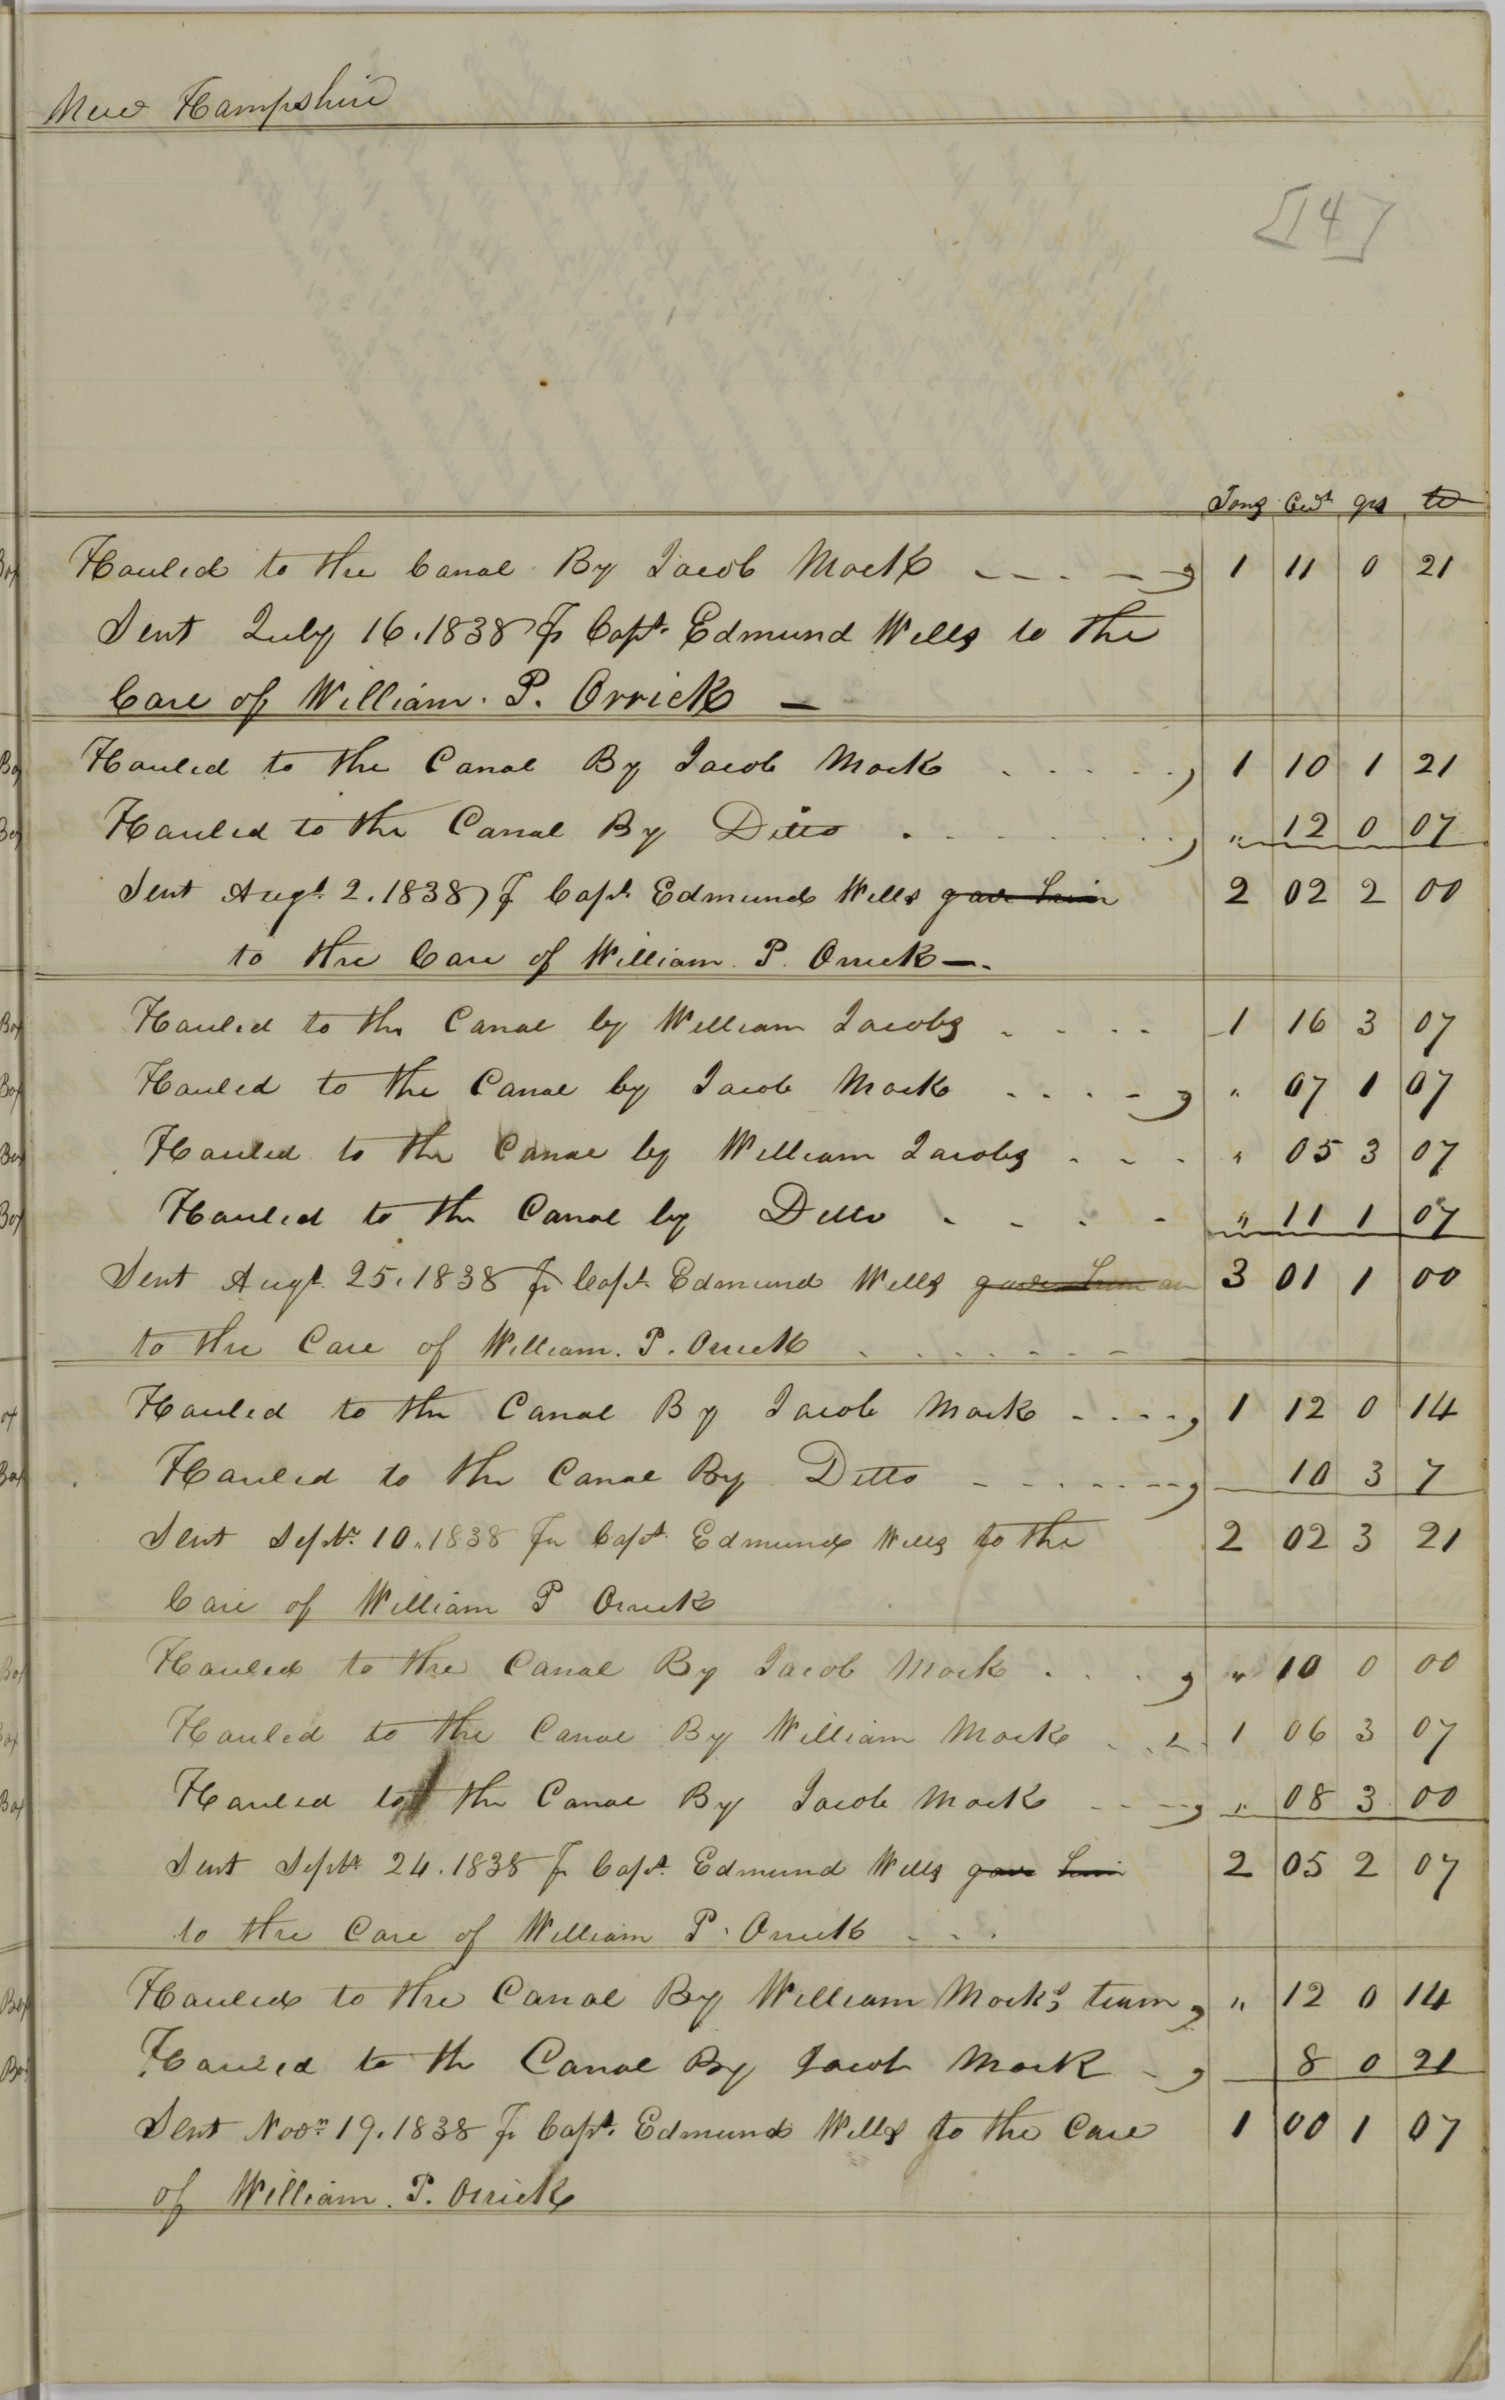 New Hampshire
[14]
Tons Cwt qrs lb
Hauled to the Canal By Jacob Mock 1 11 0 21
Sent July 16. 1838 pr Capt. Edmund Wells to the
Care of William. P. Orrick —
Hauled to the Canal By Jacob Mock 1 10 1 21
Hauled to the Canal By Ditto " 12 0 07
Sent Augt. 2. 1838 pr Capt. Edmund Wells gave him 2 02 2 00
to the Care of William. P. Orrick —.
Hauled to the Canal by William Jacobs 1 16 3 07
Hauled to the Canal by Jacob Mock " 07 1 07
Hauled to the Canal by William Jacobs " 05 3 07
Hauled to the Canal by Ditto " 11 1 07
Sent Augt 25. 1838 pr Capt. Edmund Wells gave him 3 01 1 00
to the Care of William. P. Orrick
Hauled to the Canal By Jacob Mock 1 12 0 14
Hauled to the Canal By Ditto 10 3 7
Sent Septr. 10. 1838 pr Capt. Edmund Wells to the 2 02 3 21
Care of William P Orrick
Hauled to the Canal By Jacob Mock " 10 0 00
Hauled to the Canal By William Mock 1 06 3 07
Hauled to the Canal By Jacob Mock " 08 3 00
Sent Septr. 24. 1838 pr Capt. Edmund Wells gave him 2 05 2 07
to the Care of William P. Orrick
Hauled to the Canal By William Mock's team, " 12 0 14
Hauled to the Canal By Jacob Mock 8 0 21
Sent Novr. 19. 1838 pr Capt. Edmund Wells to the Care 1 00 1 07
of William. P. Orrick